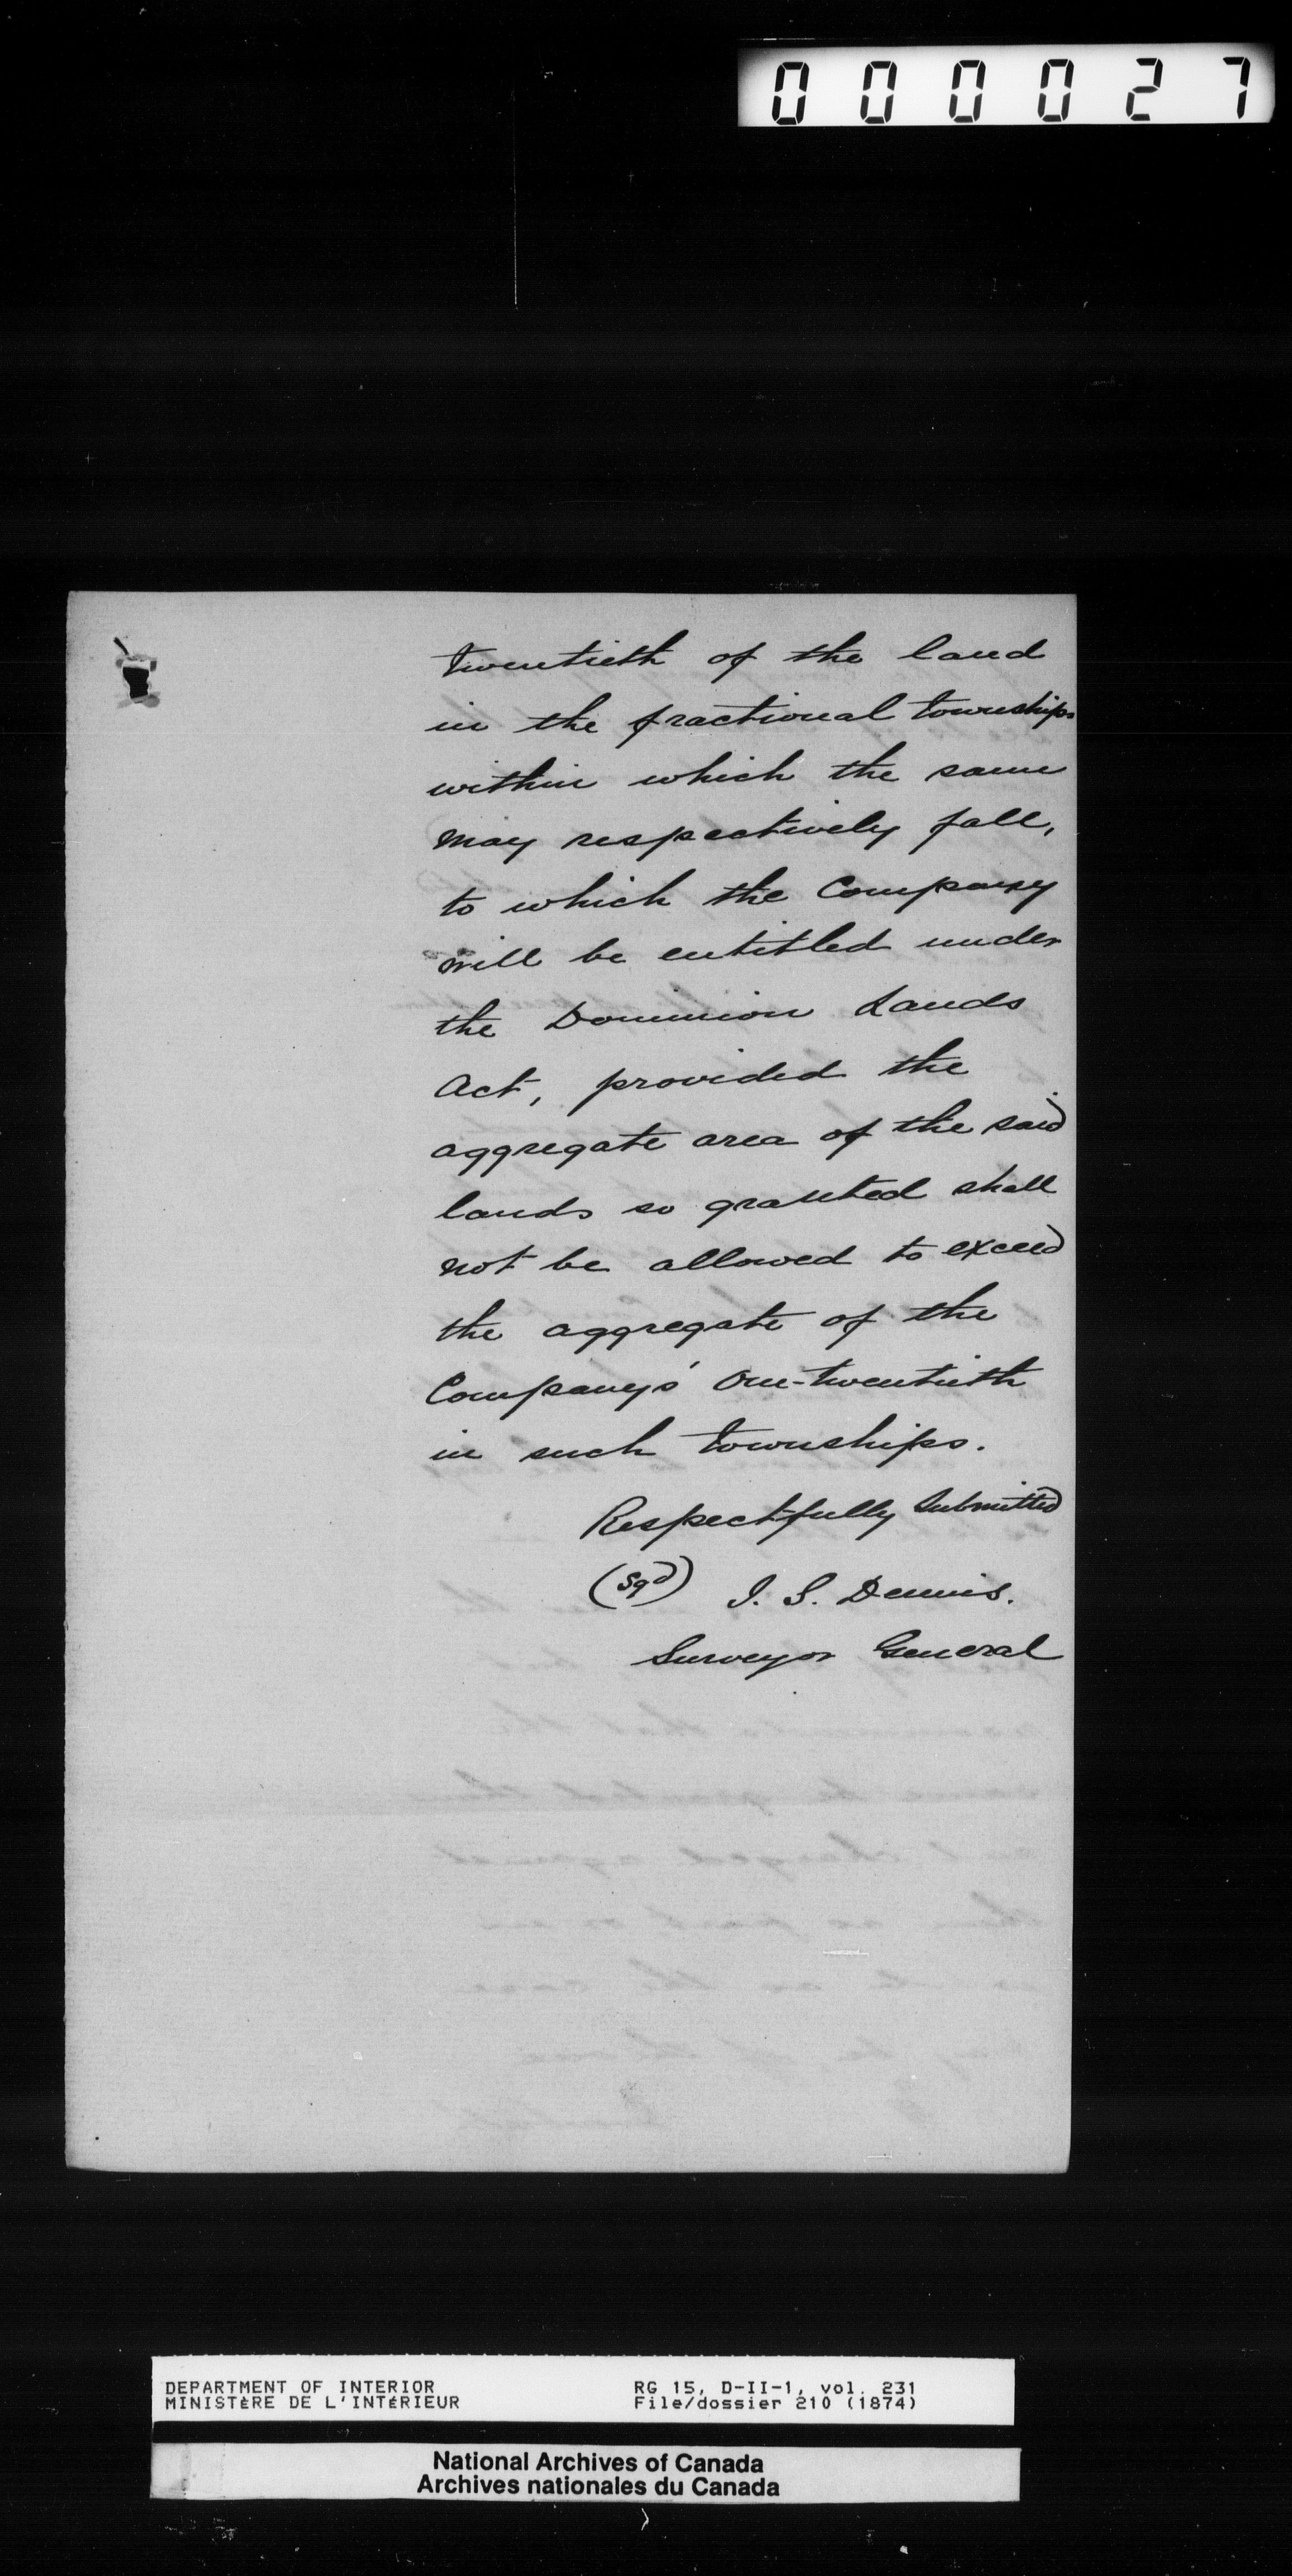 000027
twentieth of the land
in the fractional townships
within which the same
may respectively fall,
to which the Company
will be entitled under
the Dominion Lands
Act, provided the
aggregate area of the said
lands so granted shall
not be allowed to exceed
the aggregate of the
Company's One-twentieth
in such townships.
Respectfully Submitted
(Sgd) J. S. Dennis.
Surveyor General
DEPARTMENT OF INTERIOR RG 15, D-II-1, vol. 231
MINISTÈRE DE L'INTÉRIEUR File/dossier 210 (1874)
National Archives of Canada
Archives nationales du Canada